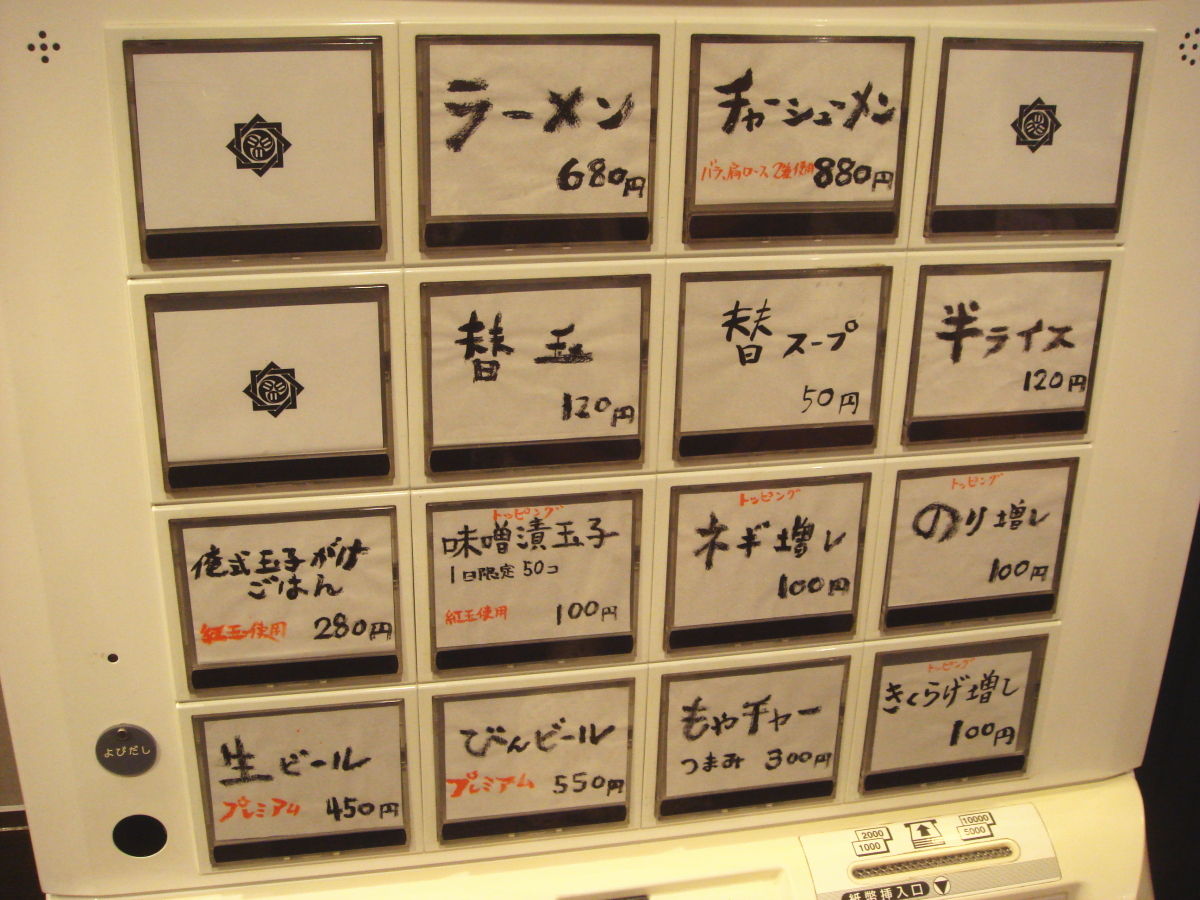 ラーメン
680円
チャーシューメン
バラ、肩ロース 2種使用 880円
替玉
120円
替スープ
50円
半ライス
120円
俺式玉子がけ
ごはん
紅玉使用 280円
トッピング
味噌漬玉子
1日限定50コ
紅玉使用 100円
トッピング
ネギ増し
100円
トッピング
のり増し
100円
生ビール
プレミアム 450円
びんビール
プレミアム 550円
もやチャー
つまみ 300円
トッピング
きくらげ増し
100円
よびだし
2000
1000
10000
5000
紙幣挿入口